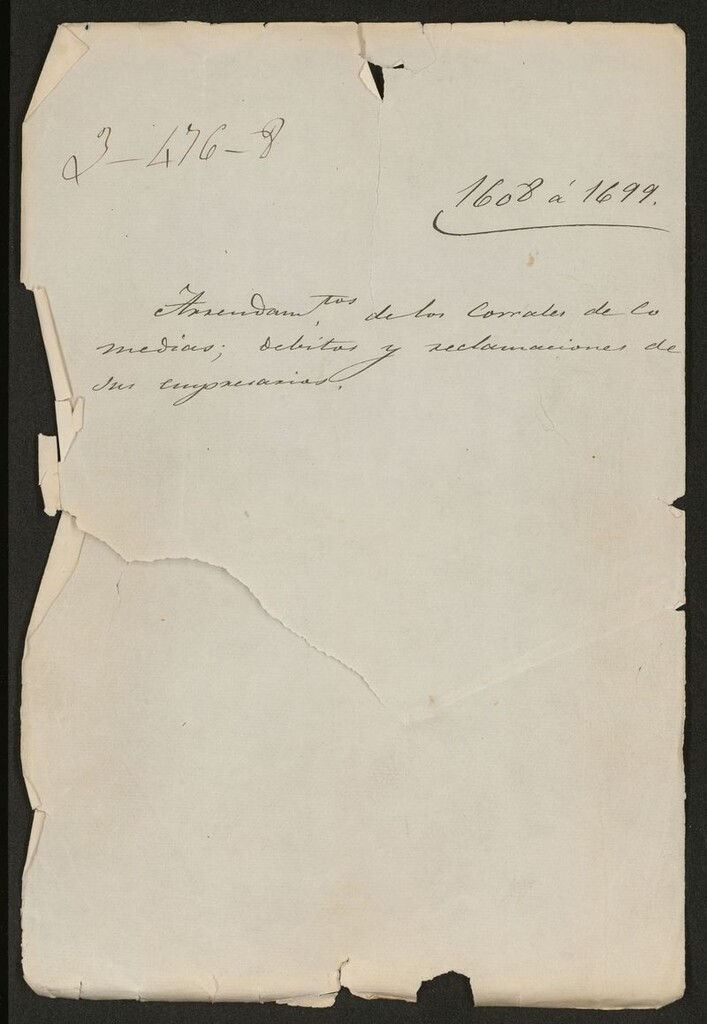 3-476-8
1608 á 1699.
Arrendam.tos de los Corrales de Co
medias; debitos y reclamaciones de
sus empresarios.